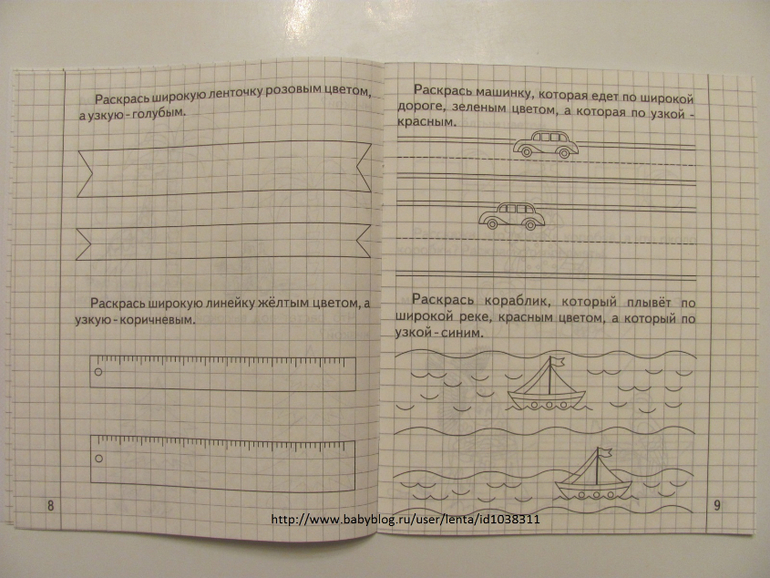 Раскрась широкую ленточку розовым цветом,
а узкую - голубым.
Раскрась широкую линейку жёлтым цветом, а
узкую - коричневым.
8
Раскрась машинку, которая едет по широкой
дороге, зеленым цветом, а которая по узкой -
красным.
Раскрась кораблик, который плывёт по
широкой реке, красным цветом, а который по
узкой - синим.
9
http://www.babyblog.ru/user/lenta/id1038311